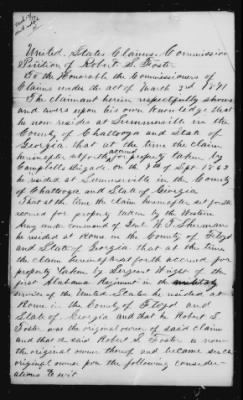 United States Claims Commission
Petition of Robert S. Foster
To the Honorable the Commissioners of
Claims under the act of March 3rd 1871
The claimant herein respectfully shows
and avers upon his own knowledge that
he now resides at Summerville in the
County of Chattooga and State of
Georgia that at the time the claim
hereinafter set forth accrued for property taken by
Campbells Brigade on the 9th of Sept 1863
he resided at Summerville in the County
of Chattooga and State of Georgia
That at the time the claim hereinafter set forth
accrued for property taken by the Western
Army under command of Genl W. T. Sherman
he resided at Rome in the County of Floyd
and State of Georgia that at the time
the claim hereinafter set forth accrued for
property taken by Sergeant Wright of the
first Alabama Regiment in the military
services of the United States he resided at
Rome in the County of Floyd and
State of Georgia and that he Robert S.
Foster was the original owner of said claim
and that he said Robert S. Foster is now
the original owner thereof and became such
original owner for the following consider-
ations to wit